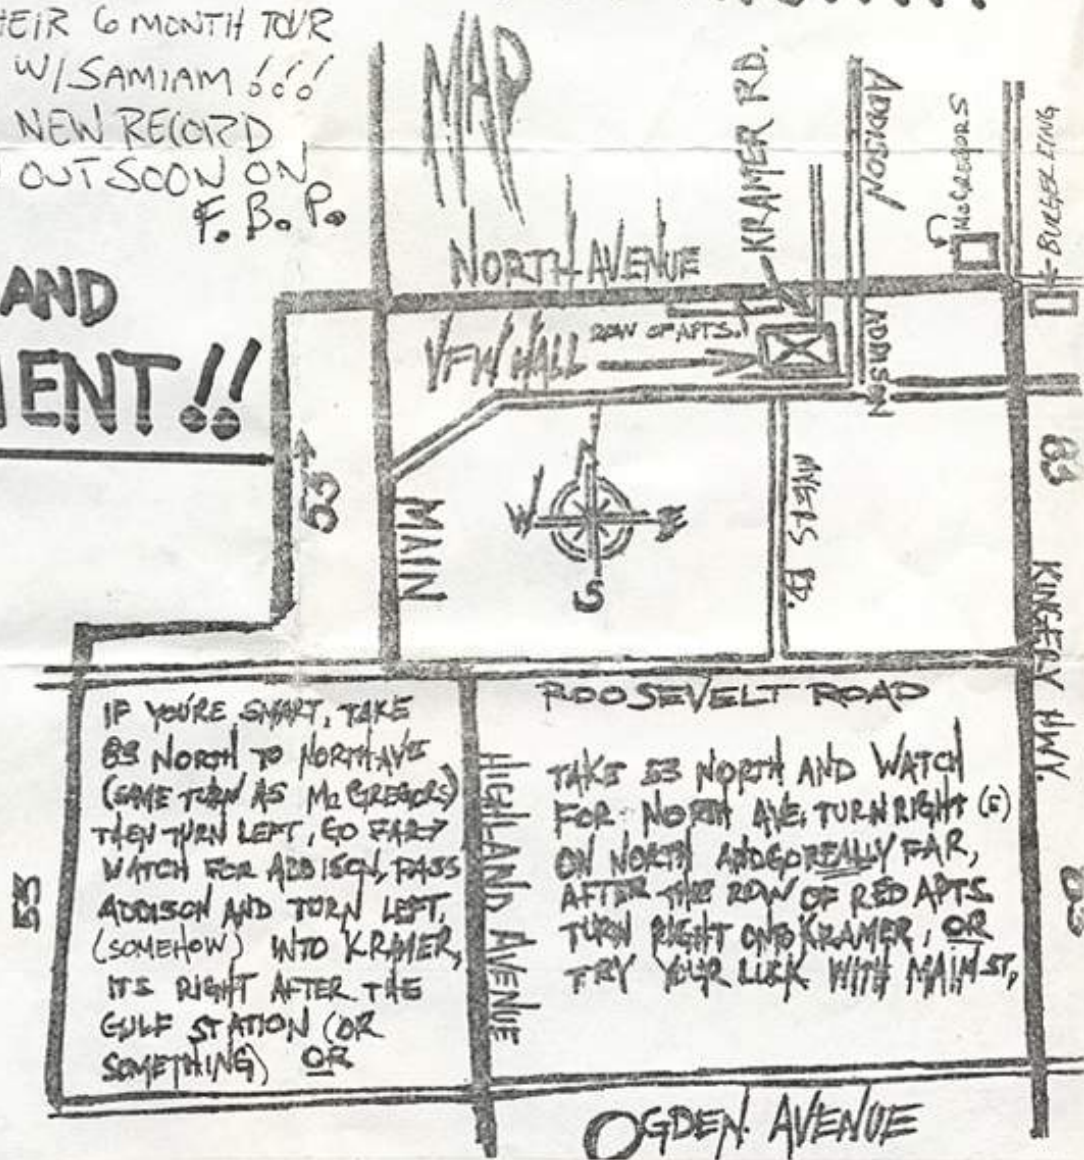 HEIR 6 MONTH TOUR
W/ SAMIAM !!!
NEW RECORD
OUT SOON ON
F. B. P.
AND
MENT!!
MAP
NORTH AVENUE
KRAMER RD.
ADDISON
McGREGORS
BURGER KING
ROW OF APTS.
VFW HALL
ADDISON
53
MAIN
N
W
E
S
RD.
83
KINGERY HWY.
ROOSEVELT ROAD
IF YOU'RE SMART, TAKE
83 NORTH TO NORTH AVE
(SAME TURN AS McGREGORS)
THEN TURN LEFT, GO FAR →
WATCH FOR ADDISON, PASS
ADDISON AND TURN LEFT,
(SOMEHOW) INTO KRAMER,
ITS RIGHT AFTER THE
GULF STATION (OR
SOMETHING) OR
53
HIGHLAND AVENUE
TAKE 53 NORTH AND WATCH
FOR NORTH AVE. TURN RIGHT (E)
ON NORTH AND GO REALLY FAR,
AFTER THE ROW OF RED APTS.
TURN RIGHT ONTO KRAMER, OR
TRY YOUR LUCK WITH MAIN ST,
83
OGDEN AVENUE